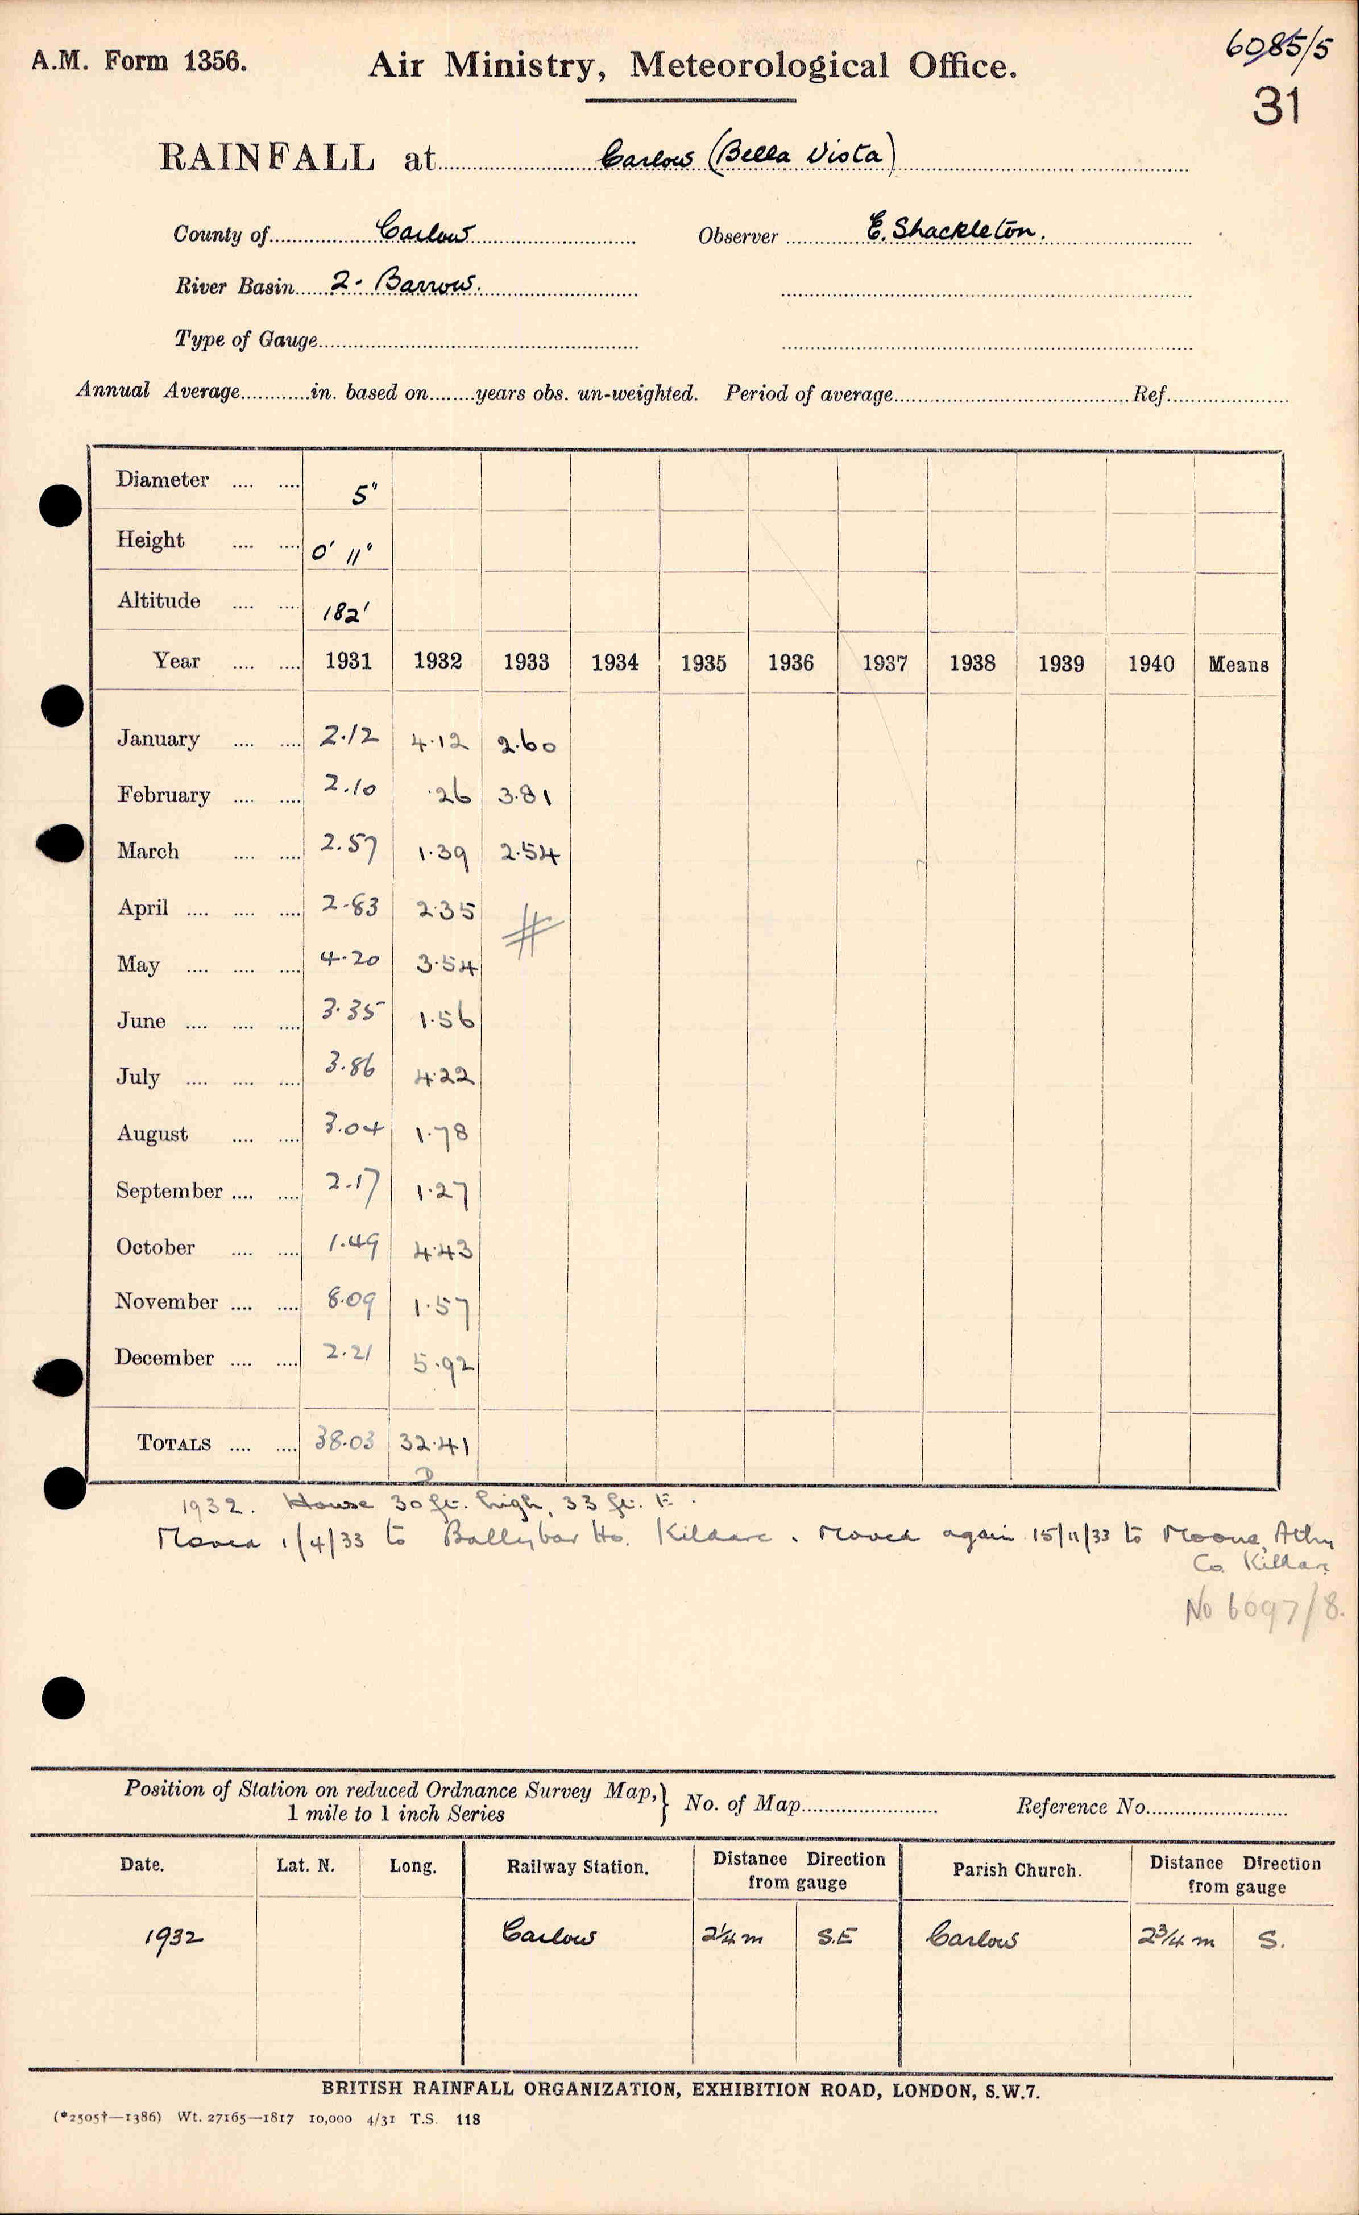 6085/5
A.M. Form 1356.
Air Ministry, Meteorological Office.
31
RAINFALL at Carlow (Bella Vista)
County of Carlow Observer E. Shackleton.
River Basin 2. Barrow.
Type of Gauge
Annual Average in. based on years obs. un-weighted. Period of average Ref.
Diameter 5"
Height 0' 11"
Altitude 182'
Year 1931 1932 1933 1934 1935 1936 1937 1938 1939 1940 Means
January 2.12 4.12 2.60
February 2.10 .26 3.81
March 2.57 1.39 2.54
April 2.83 2.35 #
May 4.20 3.54
June 3.35 1.56
July 3.86 4.22
August 3.04 1.78
September 2.17 1.27
October 1.49 4.43
November 8.09 1.57
December 2.21 5.92
TOTALS 38.03 32.41
1932. House 30 ft. high, 33 ft. E.
Moved 1/4/33 to Ballybar Ho. Kildare. Moved again 15/11/33 to Moone, Athy
Co. Kildare
No 6097/8.
Position of Station on reduced Ordnance Survey Map, } No. of Map Reference No.
1 mile to 1 inch Series
Date. Lat. N. Long. Railway Station. Distance Direction from gauge Parish Church. Distance Direction from gauge
1932 Carlow 2¼ m S.E Carlow 2¾ m S.
BRITISH RAINFALL ORGANIZATION, EXHIBITION ROAD, LONDON, S.W.7.
(*2505†—1386) Wt. 27165—1817 10,000 4/31 T.S. 118